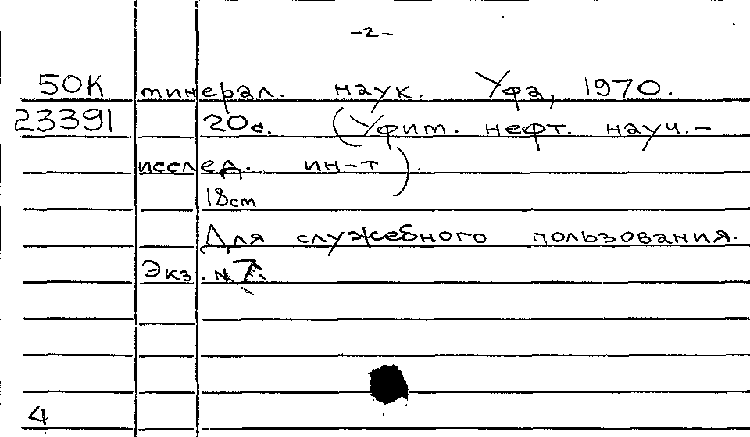 -2-
50К минерал. наук. Уфа, 1970.
23391 20с. (Уфим. нефт. науч.-
исслед. ин-т)
18cm
Для служебного пользования.
Экз. N 7.
4